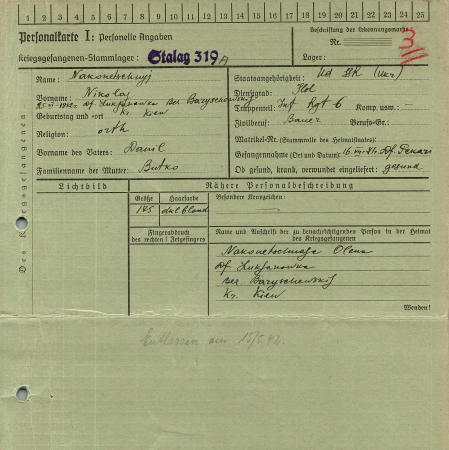 1 2 3 4 5 6 7 8 9 10 11 12 13 14 15 16 17 18 19 20 21 22 23 24 25
Personalkarte I: Personelle Angaben
Beschriftung der Erkennungsmarke
Nr. 3
Kriegsgefangenen-Stammlager: Stalag 319 A
Lager:
Des Kriegsgefangenen
Name: Nakonetschnyj
Vorname: Nikolaj
Geburtstag und -ort Df. Lukjanowka Ber Baryschewskij
Kr. Kiew
Religion: orth
Vorname des Vaters: Danil
Familienname der Mutter: Butko
Staatsangehörigkeit: (Ukr)
Dienstgrad: Sol
Truppenteil: Inf Rgt 6 Komp. usw.:
Zivilberuf: Bauer Berufs-Gr.:
Matrikel-Nr. (Stammrolle des Heimatstaates):
Gefangennahme (Ort und Datum): Df.
Ob gesund, krank, verwundet eingeliefert: gesund
Lichtbild
Nähere Personalbeschreibung
Größe Haarfarbe Besondere Kennzeichen:
dklblond
Fingerabdruck
des rechten ! Zeigefingers
Name und Anschrift der zu benachrichtigenden Person in der Heimat
des Kriegsgefangenen
Olena
Df Lukjanowka
Ber Baryschewskij
Kr. Kiew
Wenden!
Entlassen am